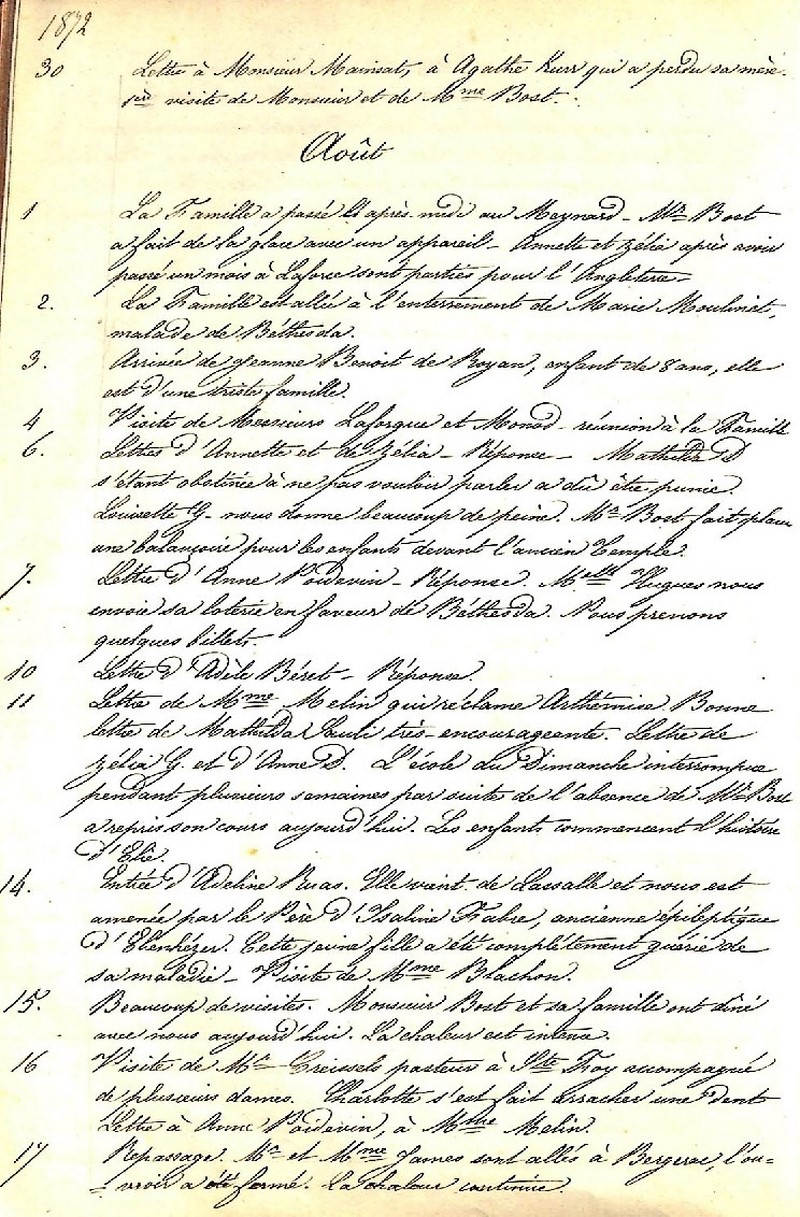 1872
30 Lettre à Monsieur Mainsat, à Agathe Kurr qui a perdu sa mère.
1ère visite de Monsieur et de Mme Bost.
Août
1 La Famille a passé l'après-midi au Meynard - Mr Bost
a fait de la glace avec un appareil - Annette et Zélia après avoir
passé un mois à Laforce sont parties pour l'Angleterre -
2. La Famille est allée à l'enterrement de Marie Moulinat,
malade de Béthesda.
3. Arrivée de Jeanne Benoit de Royan, enfant de 8 ans, elle
est d'une triste famille.
4 Visite de Messieurs Laforgue et Monod - réunion à la Famille
6. Lettres d'Annette et de Zélia - Réponse - Mathilde D
s'étant obstinée à ne pas vouloir parler a dû être punie.
Louisette G. nous donne beaucoup de peine. Mr Bost fait placer
une balançoire pour les enfants devant l'ancien Temple.
7. Lettre d'Anne Poidevin - Réponse. Melle Hugues nous
envoie sa loterie en faveur de Béthesda. Nous prenons
quelques billets.
10 Lettre d'Adèle Béret - Réponse.
11 Lettre de Mme Melin qui réclame Arthémise. Bonne
lettre de Mathilde Sauli très-encourageante. Lettre de
Zélia G. et d'Anne D. L'école du Dimanche interrompue
pendant plusieurs semaines par suite de l'absence de Mr Bost
a repris son cours aujourd'hui. Les enfants commencent l'histoire
d'Elie.
14. Entrée d'Adeline Ruas. Elle vient de Lassalle et nous est
amenée par le Père d'Isaline Fabre, ancienne épileptique
d'Ebenhézer. Cette jeune fille a été complétement guérie de
sa maladie - Visite de Mme Blachon.
15. Beaucoup de visites. Monsieur Bost et sa famille ont dîné
avec nous aujourd'hui. La chaleur est intense.
16 Visite de Mr Creissels pasteur à Ste Foy accompagné
de plusieurs dames. Charlotte s'est fait arracher une dent
Lettre à Anne Poidevin, à Mme Melin.
17 Repassage. Mr et Mme James sont allés à Bergerac, l'ou-
-vroir a été fermé. La chaleur continue.